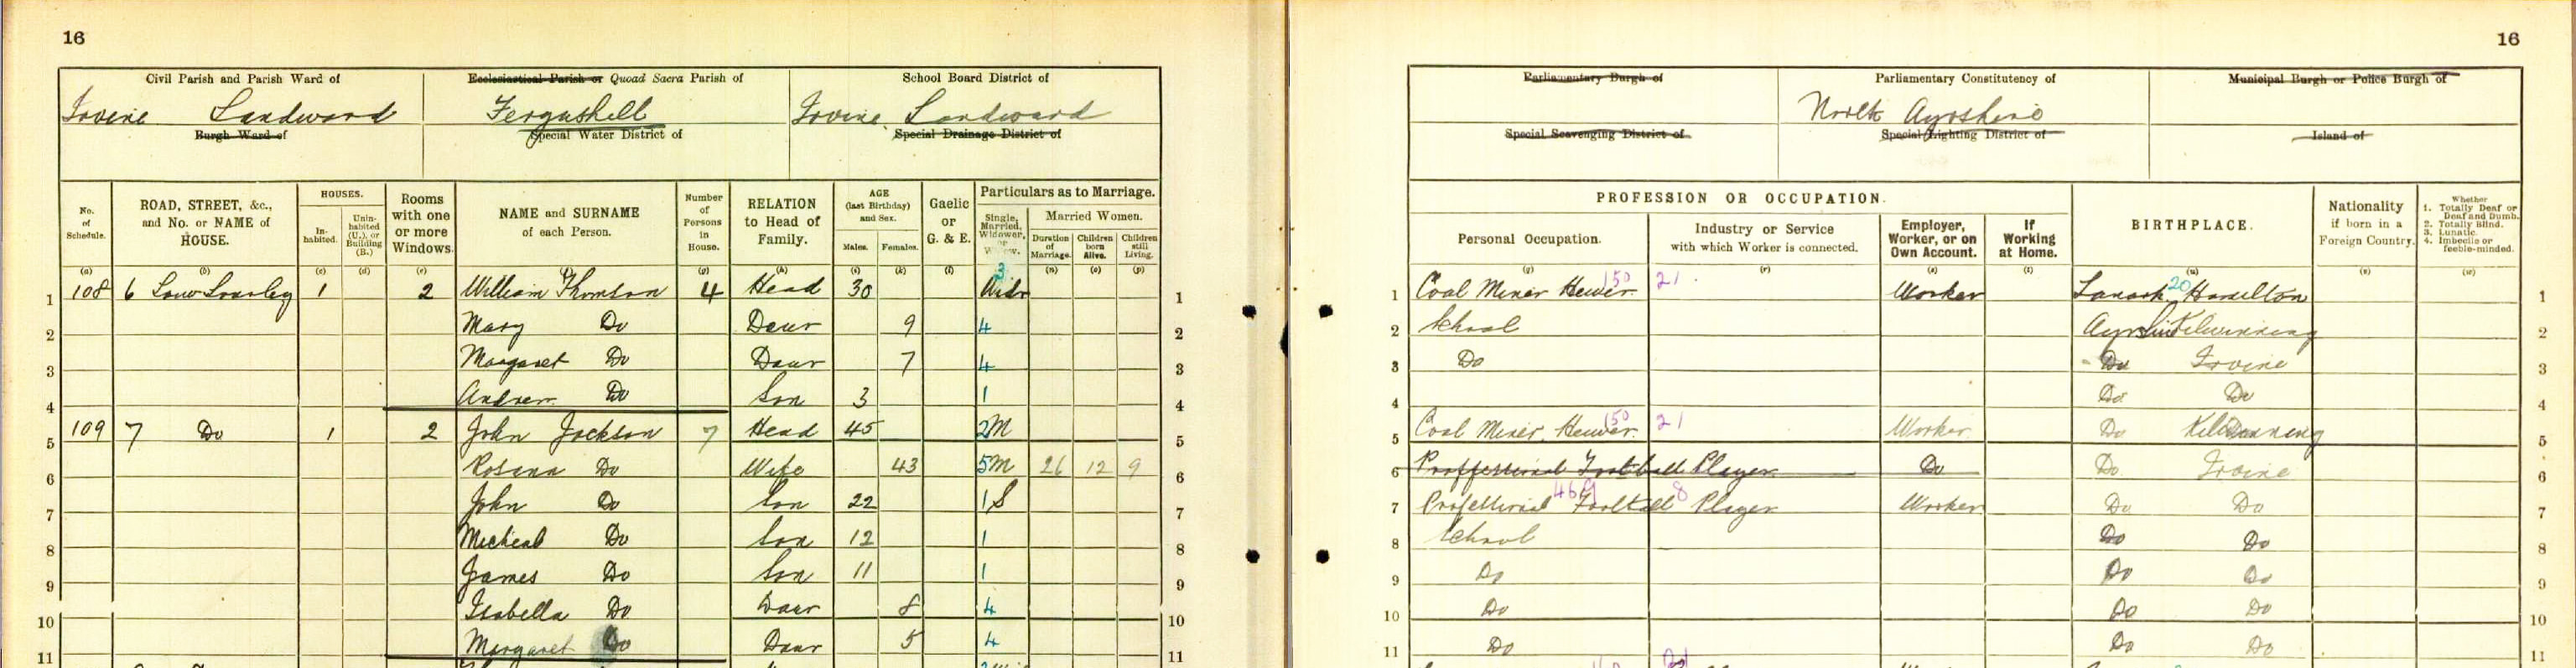 16
16
Civil Parish and Parish Ward of
Irvine Landward
Burgh Ward of
Ecclesiastical Parish or Quoad Sacra Parish of
Fergushill
Special Water District of
School Board District of
Irvine Landward
Special Drainage District of
Parliamentary Burgh of
Special Scavenging District of
Parliamentary Constitutency of
North Ayrshire
Special Lighting District of
Municipal Burgh or Police Burgh of
Island of
No. of Schedule.
ROAD, STREET, &c., and No. or NAME of HOUSE.
HOUSES.
In-habited.
Unin-habited (U.), or Building (B.)
Rooms with one or more Windows.
NAME and SURNAME of each Person.
Number of Persons in House.
RELATION to Head of Family.
AGE (last Birthday) and Sex.
Males. Females.
Gaelic or G. & E.
Particulars as to Marriage.
Single, Married, Widower, or Widow.
Married Women.
Duration of Marriage. Children born Alive. Children still Living.
PROFESSION OR OCCUPATION.
Personal Occupation.
Industry or Service with which Worker is connected.
Employer, Worker, or on Own Account.
If Working at Home.
BIRTHPLACE.
Nationality if born in a Foreign Country.
Whether
1. Totally Deaf or Deaf and Dumb.
2. Totally Blind.
3. Lunatic.
4. Imbecile or feeble-minded.
(a) (b) (c) (d) (e) (f) (g) (h) (i) (k) (l) (n) (o) (p) (q) (r) (s) (t) (u) (v) (w)
1 108 6 1 2 William Thomson 4 Head 30 3 Widr 1 1 Coal Miner Hewer 150 21 Worker Lanark 20 Hamilton 1
2 Mary Do Daur 9 4 2 2 School Ayrshire Kilwinning 2
3 Margaret Do Daur 7 4 3 3 Do Do Irvine 3
4 Andrew Do Son 3 1 4 4 Do Do 4
5 109 7 Do 1 2 John Jackson 7 Head 45 2 M 5 5 Coal Miner Hewer 150 21 Worker Do Kilwinning 5
6 Rosina Do Wife 43 5 M 26 12 9 6 6 Proffessional Football Player Do Do Irvine 6
7 John Do Son 22 1 S 7 7 Professional Football Player 469 8 Worker Do Do 7
8 Micheal Do Son 12 1 8 8 School Do Do 8
9 James Do Son 11 1 9 9 Do Do Do 9
10 Isabella Do Daur 8 4 10 10 Do Do Do 10
11 Margaret Do Daur 5 4 11 11 Do Do Do 11